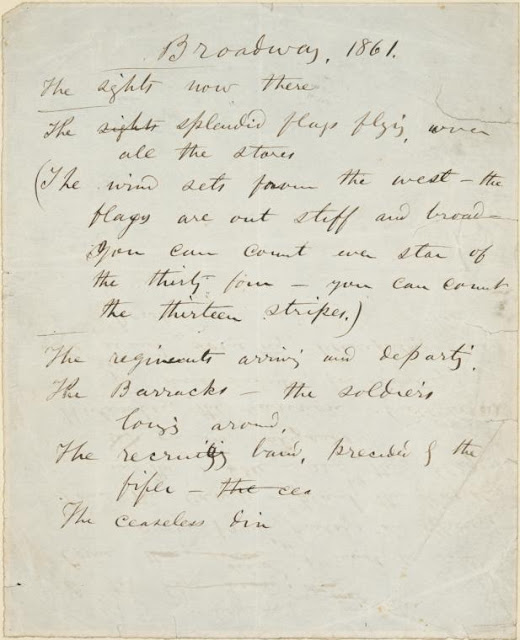 Broadway, 1861.
The sights now there
The sights splendid flags flying over
all the stores
(The wind sets from the west – the
flags are out stiff and broad –
you can count ever star of
the thirty-four – you can count
the thirteen stripes.)
The regiments arriving and departing,
The Barracks – the soldiers
lounging around,
The recruiting band, preceded by the
fifer – the cea
The ceaseless din